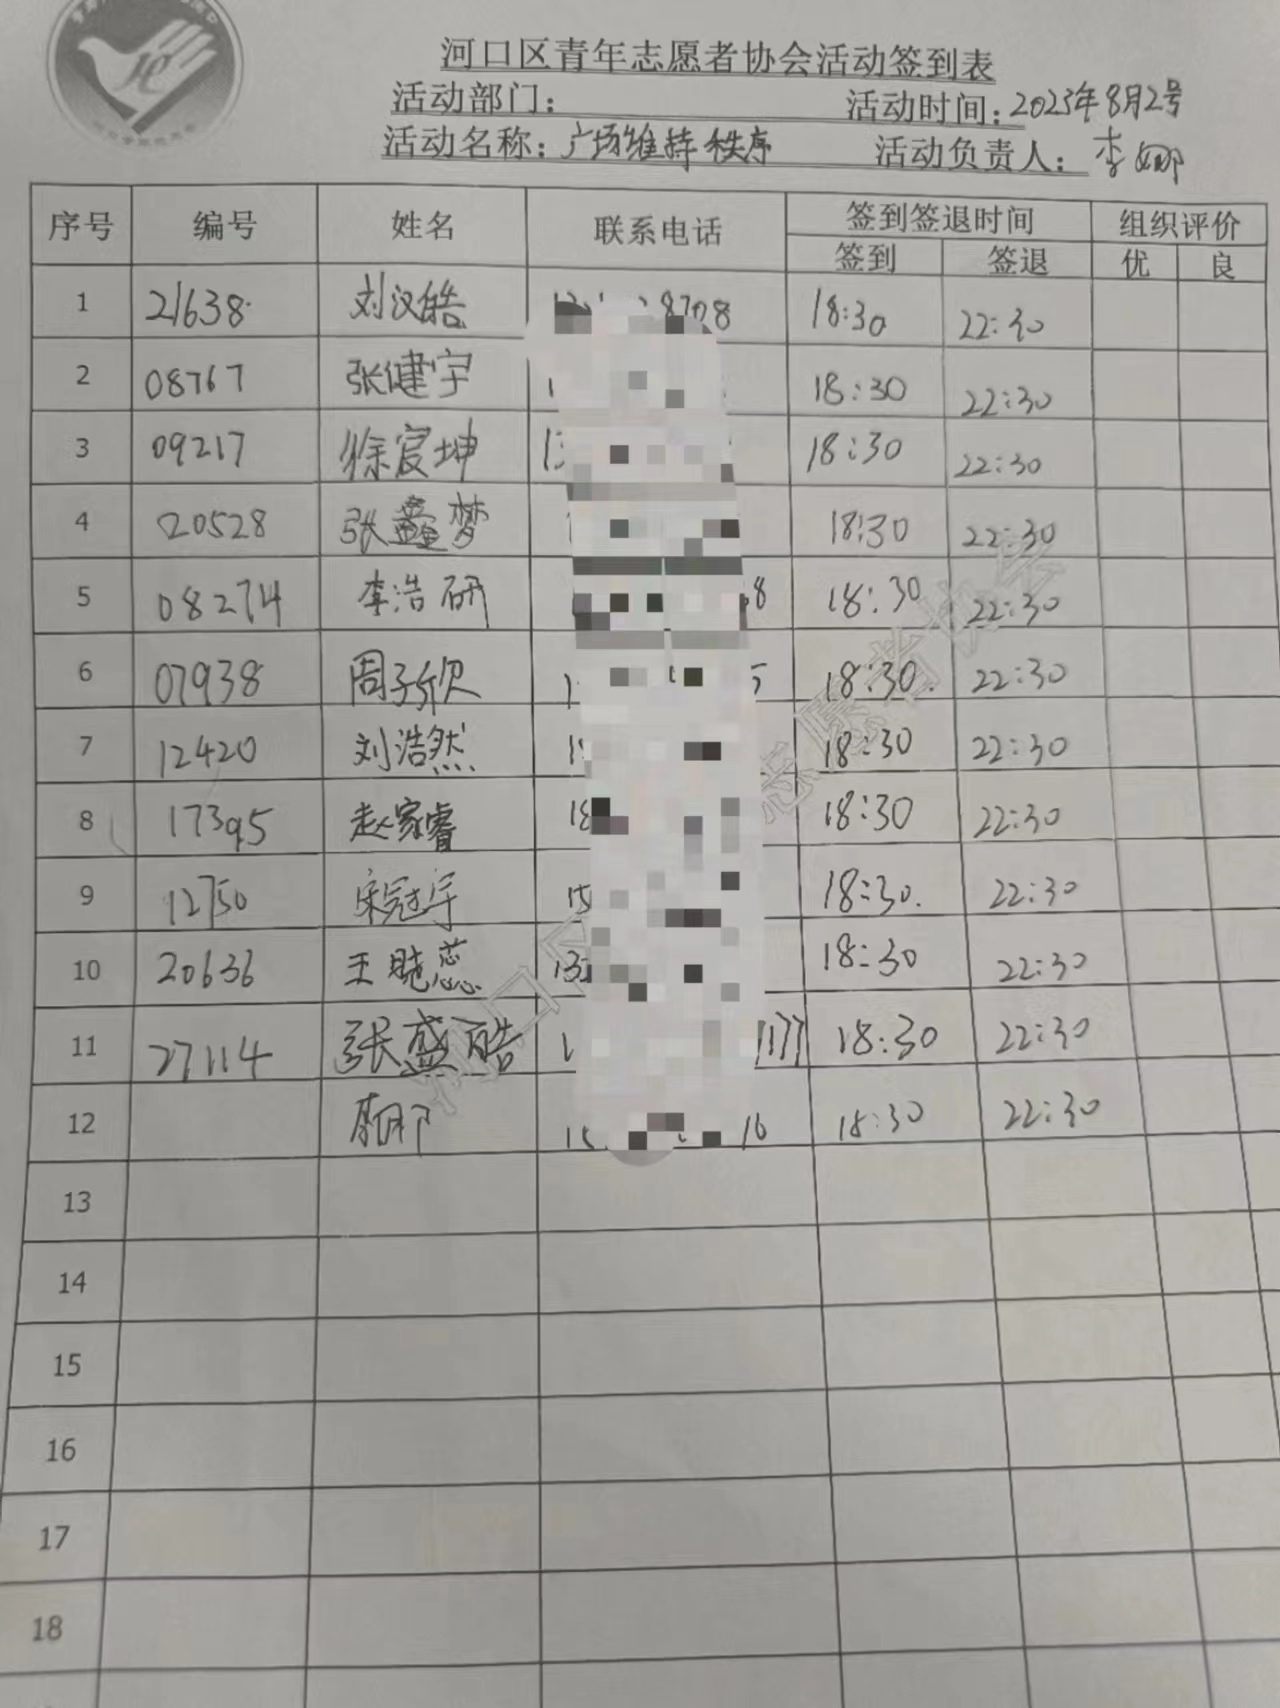 河口区青年志愿者协会活动签到表
活动部门： 活动时间：2023年8月2号
活动名称：广场维持秩序 活动负责人：李娜
序号 编号 姓名 联系电话 签到签退时间 组织评价
签到 签退 优 良
1 21638 刘汉皓 8708 18:30 22:30
2 08767 张健宇 1 18:30 22:30
3 09217 徐宸坤 13 18:30 22:30
4 20528 张鑫梦 18:30 22:30
5 08274 李浩研 68 18:30 22:30
6 07938 周子欣 1 5 18:30. 22:30
7 12420 刘浩然 18:30 22:30
8 17395 赵家睿 18 18:30 22:30
9 12750 宋冠宇 15 18:30. 22:30
10 20636 王晓蕊 13 18:30 22:30
11 27114 张盛皓 1 177 18:30 22:30
12 16 18:30 22:30
13
14
15
16
17
18
河口区 志愿者协会